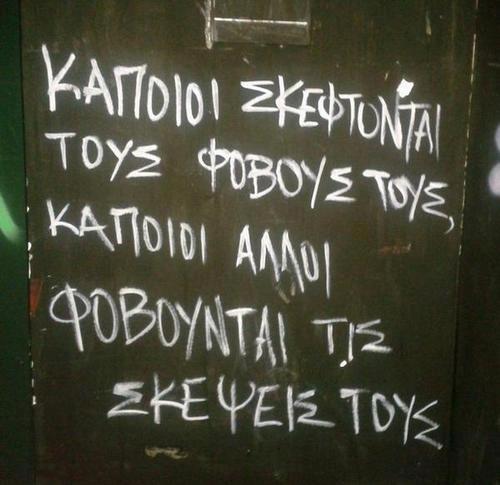 ΚΑΠΟΙΟΙ ΣΚΕΦΤΟΝΤΑΙ
ΤΟΥΣ ΦΟΒΟΥΣ ΤΟΥΣ,
ΚΑΠΟΙΟΙ ΑΛΛΟΙ
ΦΟΒΟΥΝΤΑΙ ΤΙΣ
ΣΚΕΨΕΙΣ ΤΟΥΣ